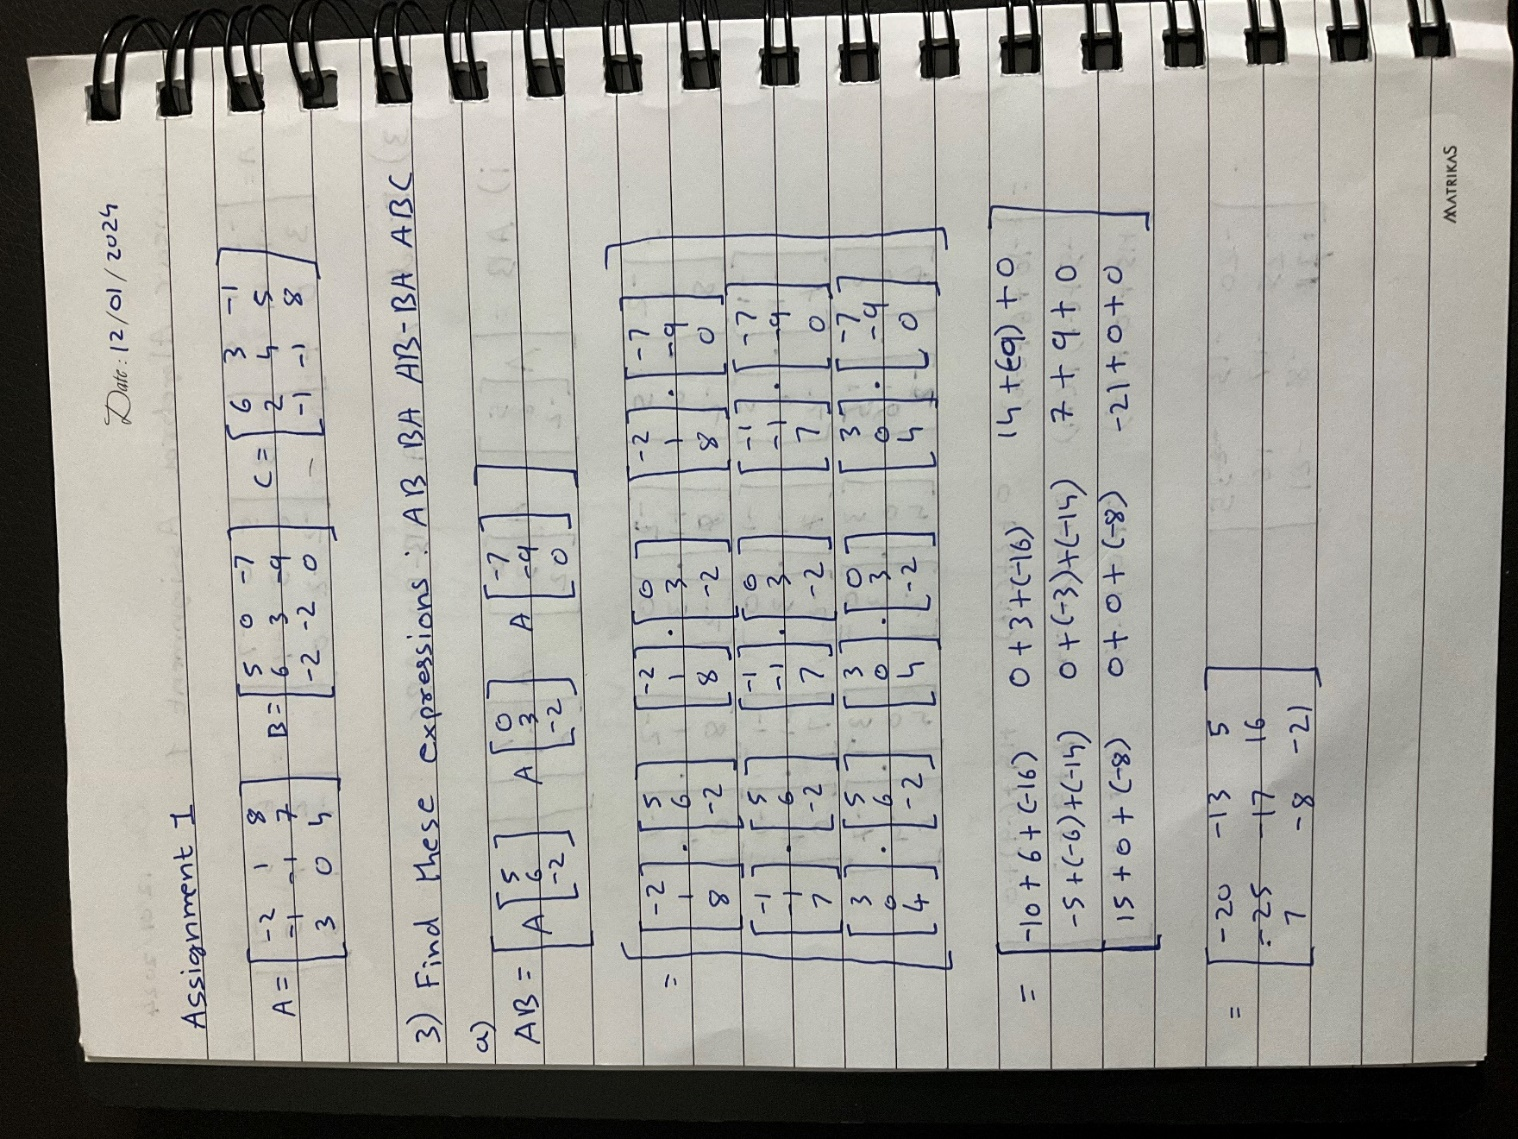 Date: 12/01/2024
Assignment 1
A = [-2 1 8] B = [5 0 -7] C = [6 3 -1]
[-1 -1 7] [6 3 -9] [2 4 5]
[3 0 4] [-2 -2 0] [-1 -1 8]
3) Find these expressions: AB BA AB-BA ABC
a)
AB = [A[5 6 -2] A[0 3 -2] A[-7 -9 0]]
= [[-2 1 8].[5 6 -2] [-2 1 8].[0 3 -2] [-2 1 8].[-7 -9 0]]
[[-1 -1 7].[5 6 -2] [-1 -1 7].[0 3 -2] [-1 -1 7].[-7 -9 0]]
[[3 0 4].[5 6 -2] [3 0 4].[0 3 -2] [3 0 4].[-7 -9 0]]
= [-10+6+(-16) 0+3+(-16) 14+(-9)+0]
[-5+(-6)+(-14) 0+(-3)+(-14) 7+9+0]
[15+0+(-8) 0+0+(-8) -21+0+0]
= [-20 -13 5]
[-25 -17 16]
[7 -8 -21]
MATRIKAS